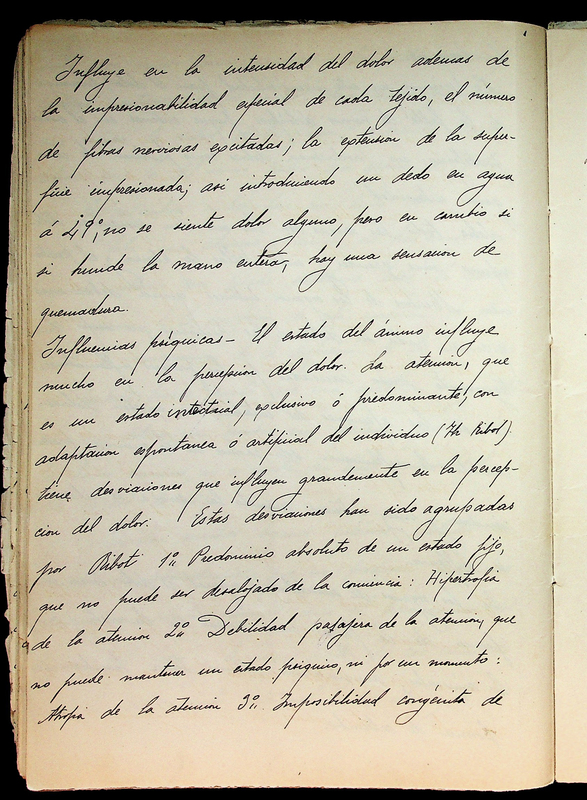 Influye en la intensidad del dolor ademas de
la impresionabilidad especial de cada tejido, el número
de fibras nerviosas excitadas; la extension de la super-
ficie impresionada; asi introduciendo un dedo en agua
á 49°, no se siente dolor alguno, pero en cambio si
si hunde la mano entera, hay una sensacion de
quemadura.
Influencias psíquicas - El estado del ánimo influye
mucho en la percepcion del dolor. La atencion, que
es un estado intelectual, exclusivo ó predominante, con
adaptacion espontanea ó artificial del individuo (Th Ribot)
tiene desviaciones que influyen grandemente en la percep-
cion del dolor. Estas desviaciones han sido agrupadas
por Ribot 1º Predominio absoluto de un estado fijo,
que no puede ser desalojado de la conciencia: Hipertrofia
de la atencion 2º Debilidad pasajera de la atencion, que
no puede mantener un estado psiquico, ni por un momento:
Atrofia de la atencion 3º Imposibilidad congénita de